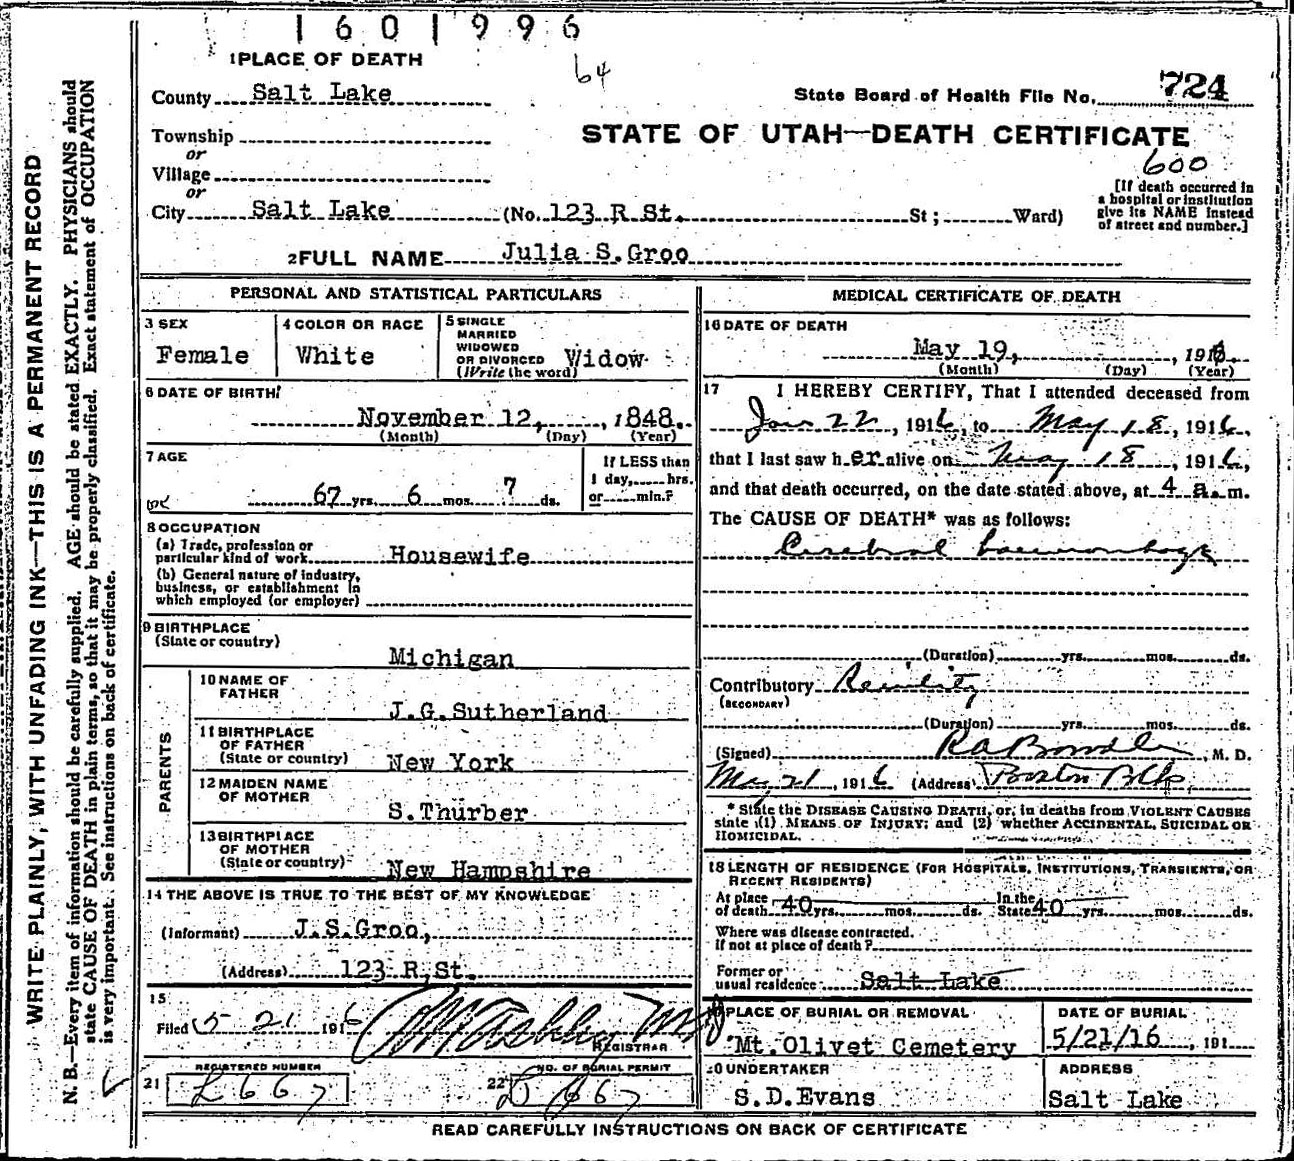 1601996
64
1 PLACE OF DEATH
County Salt Lake
State Board of Health File No. 724
Township
or
Village
or
STATE OF UTAH—DEATH CERTIFICATE
600
[If death occurred in
a hospital or institution
give its NAME instead
of street and number.]
City Salt Lake (No. 123 R St. St; Ward)
2 FULL NAME Julia S. Groo
PERSONAL AND STATISTICAL PARTICULARS
3 SEX
Female
4 COLOR OR RACE
White
5 SINGLE
MARRIED
WIDOWED
OR DIVORCED
(Write the word)
Widow
6 DATE OF BIRTH
November 12, , 1848.
(Month) (Day) (Year)
7 AGE
67 yrs. 6 mos. 7 ds.
If LESS than
1 day, hrs.
or min.?
8 OCCUPATION
(a) Trade, profession or
particular kind of work Housewife
(b) General nature of industry,
business, or establishment in
which employed (or employer)
9 BIRTHPLACE
(State or country)
Michigan
PARENTS
10 NAME OF
FATHER
J.G. Sutherland
11 BIRTHPLACE
OF FATHER
(State or country) New York
12 MAIDEN NAME
OF MOTHER
S. Thurber
13 BIRTHPLACE
OF MOTHER
(State or country) New Hampshire
14 THE ABOVE IS TRUE TO THE BEST OF MY KNOWLEDGE
(Informant) J.S. Groo,
(Address) 123 R, St.
15
Filed 5 21 1916
REGISTRAR
REGISTERED NUMBER
21 L 667
NO. OF BURIAL PERMIT
22
MEDICAL CERTIFICATE OF DEATH
16 DATE OF DEATH
May 19, , 1916.
(Month) (Day) (Year)
17 I HEREBY CERTIFY, That I attended deceased from
Jan 22, 1916, to May 18, 1916,
that I last saw her alive on May 18, 1916,
and that death occurred, on the date stated above, at 4 a. m.
The CAUSE OF DEATH* was as follows:
Cerebral haemorrhage
(Duration) yrs. mos. ds.
Contributory Senility
(SECONDARY)
(Duration) yrs. mos. ds.
(Signed) , M. D.
May 21, 1916 (Address) Boston Blk
* State the DISEASE CAUSING DEATH, or, in deaths from VIOLENT CAUSES
state (1) MEANS OF INJURY; and (2) whether ACCIDENTAL, SUICIDAL OR
HOMICIDAL.
18 LENGTH OF RESIDENCE (FOR HOSPITALS, INSTITUTIONS, TRANSIENTS, OR
RECENT RESIDENTS)
At place
of death 40 yrs. mos. ds. In the
State 40 yrs. mos. ds.
Where was disease contracted.
If not at place of death?
Former or
usual residence Salt Lake
PLACE OF BURIAL OR REMOVAL
Mt. Olivet Cemetery
DATE OF BURIAL
5/21/16 , 191
20 UNDERTAKER
S.D. Evans
ADDRESS
Salt Lake
READ CAREFULLY INSTRUCTIONS ON BACK OF CERTIFICATE
WRITE PLAINLY, WITH UNFADING INK—THIS IS A PERMANENT RECORD
N. B.—Every item of information should be carefully supplied. AGE should be stated EXACTLY. PHYSICIANS should
state CAUSE OF DEATH in plain terms, so that it may be properly classified. Exact statement of OCCUPATION
is very important. See instructions on back of certificate.